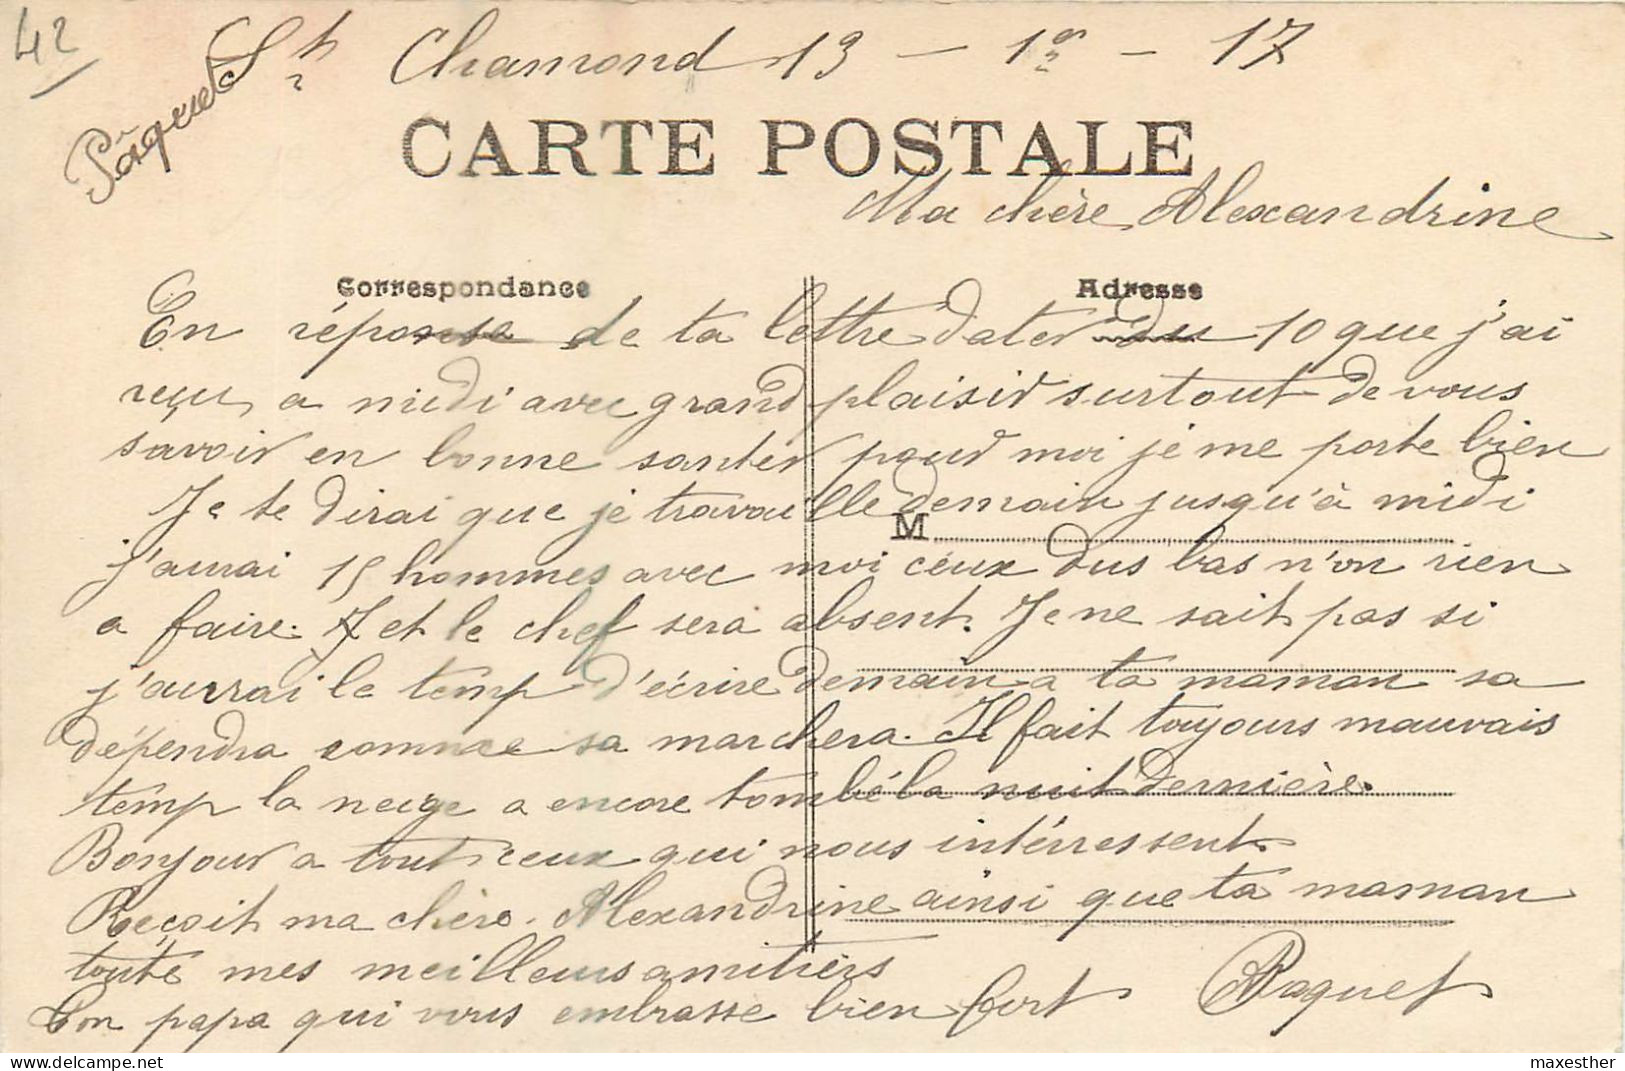 42
Paquet
St Chamond 13 - 1er - 17
CARTE POSTALE
Ma chère Alexandrine
Correspondance
Adresse
En réponse de ta lettre dater du 10 que j'ai
reçu a midi avec grand plaisir surtout de vous
savoir en bonne santer pour moi je me porte bien
Je te dirai que je travaille demain jusqu'à midi
M
j'aurai 15 hommes avec moi ceux dus bas n'on rien
a faire. et le chef sera absent. Je ne sait pas si
j'aurrai le temp d'écrire demain a ta maman sa
dépendra comme sa marchera. Il fait toujours mauvais
temp la neige a encore tombé la nuit dernière.
Bonjour a tout ceux qui nous intérressent
Reçoit ma chère Alexandrine ainsi que ta maman
toute mes meilleurs amitiers
Ton papa qui vous embrasse bien fort Paquet
maxesther